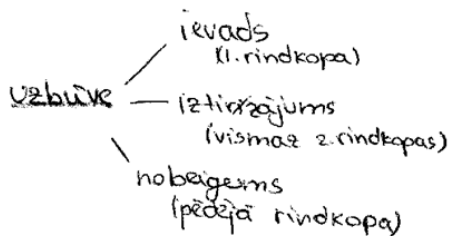 ievads
(1. rindkopa)
uzbūve
iztirzājums
(vismaz 2. rindkopas)
nobeigums
(pēdējā rindkopa)